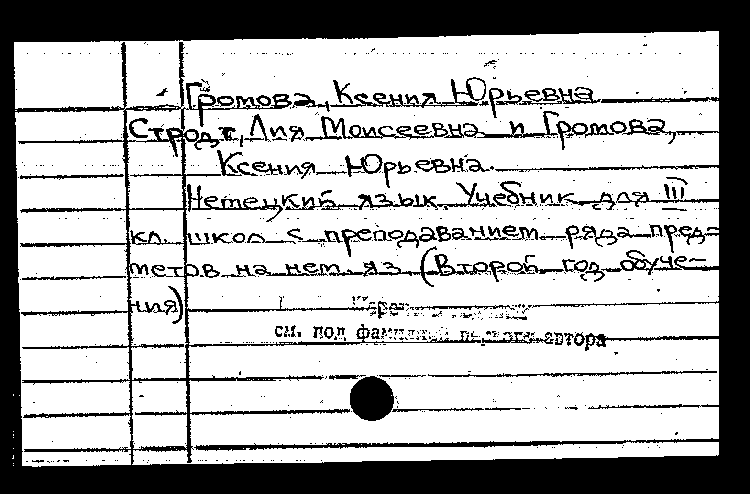 Громова, Ксения Юрьевна
Стродт, Лия Моисеевна и Громова,
Ксения Юрьевна.
Немецкий язык. Учебник для III
кл. школ с преподаванием ряда пред-
метов на нем. яз (Второй год обуче-
ния)
см. под фамилией первого автора